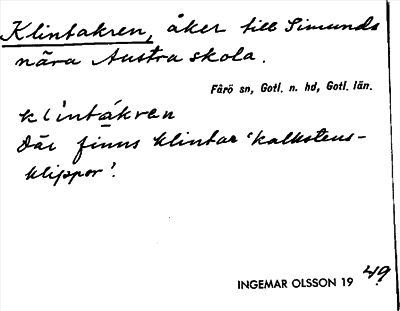 Klintakren, åker till Simunds
nära Austra skola.
Fårö sn, Gotl. n. hd, Gotl. län.
klintákren
Där finns klintar 'kalkstens-
klippor'.
INGEMAR OLSSON 19 49